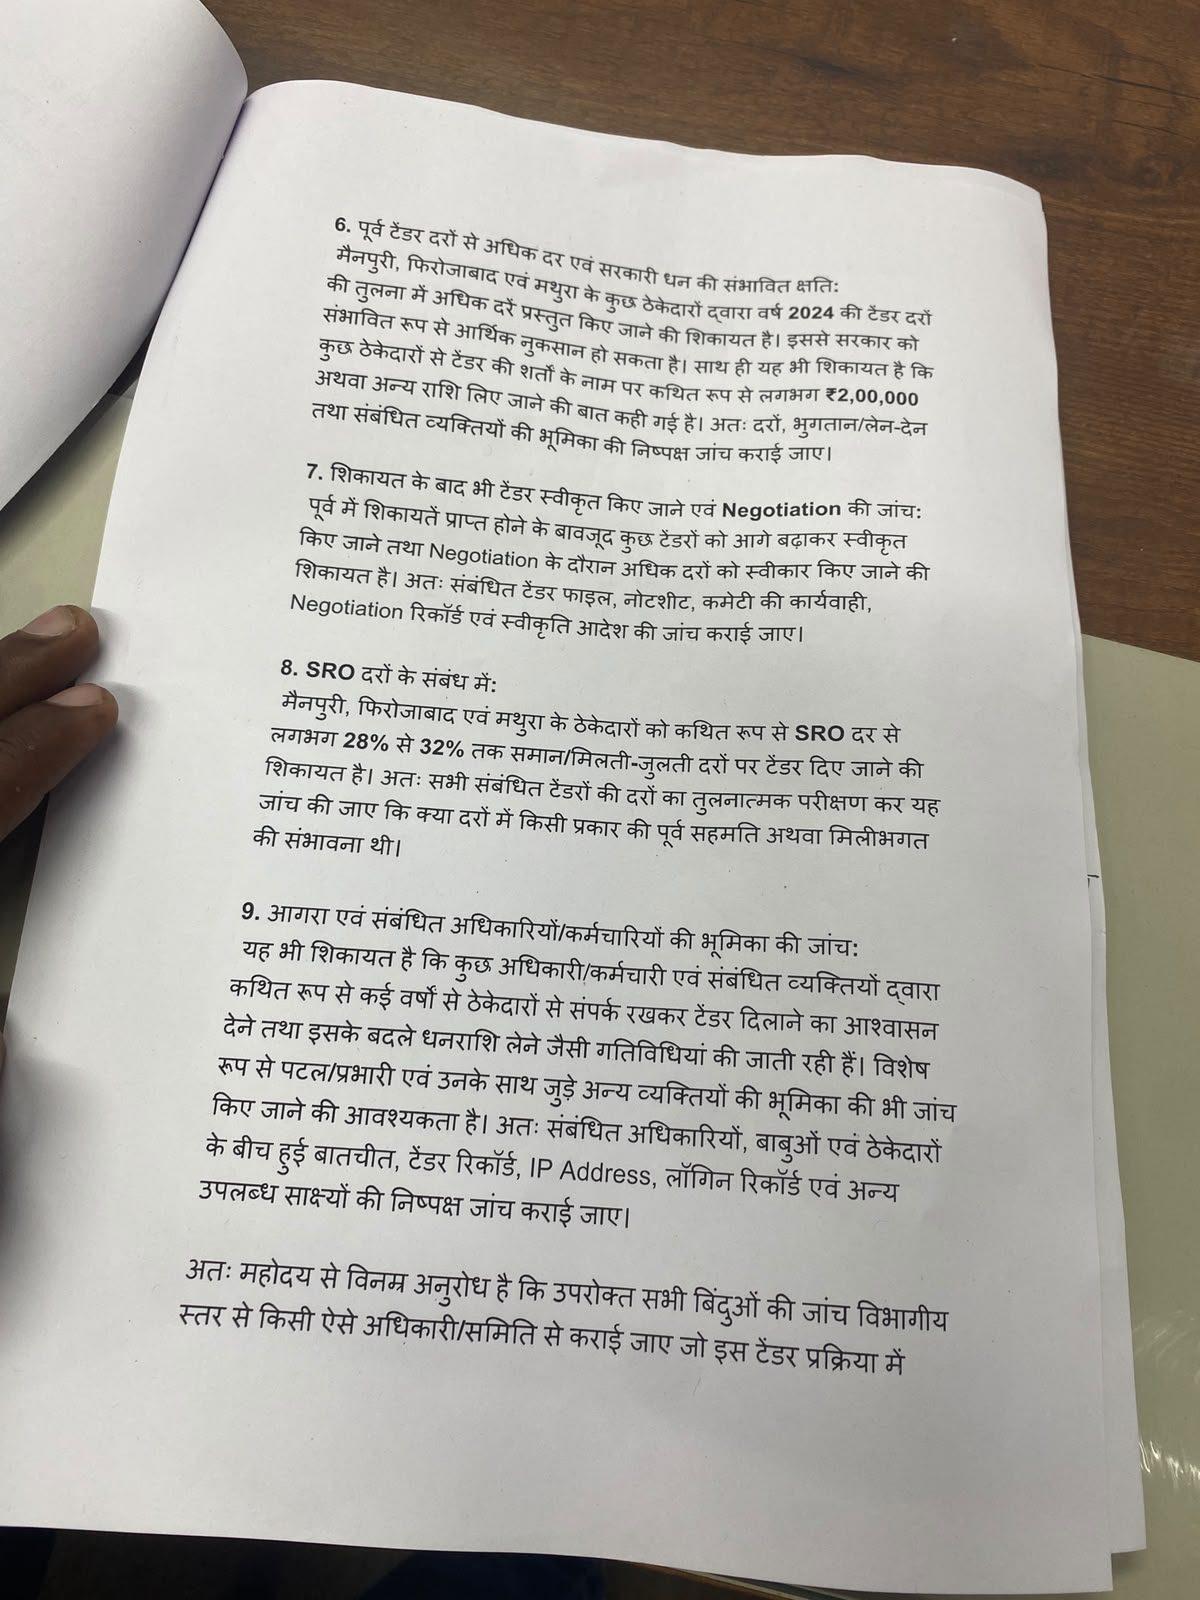 6. पूर्व टेंडर दरों से अधिक दर एवं सरकारी धन की संभावित क्षति:
मैनपुरी, फिरोजाबाद एवं मथुरा के कुछ ठेकेदारों द्वारा वर्ष 2024 की टेंडर दरों
की तुलना में अधिक दरें प्रस्तुत किए जाने की शिकायत है। इससे सरकार को
संभावित रूप से आर्थिक नुकसान हो सकता है। साथ ही यह भी शिकायत है कि
कुछ ठेकेदारों से टेंडर की शर्तों के नाम पर कथित रूप से लगभग ₹2,00,000
अथवा अन्य राशि लिए जाने की बात कही गई है। अतः दरों, भुगतान/लेन-देन
तथा संबंधित व्यक्तियों की भूमिका की निष्पक्ष जांच कराई जाए।
7. शिकायत के बाद भी टेंडर स्वीकृत किए जाने एवं Negotiation की जांच:
पूर्व में शिकायतें प्राप्त होने के बावजूद कुछ टेंडरों को आगे बढ़ाकर स्वीकृत
किए जाने तथा Negotiation के दौरान अधिक दरों को स्वीकार किए जाने की
शिकायत है। अतः संबंधित टेंडर फाइल, नोटशीट, कमेटी की कार्यवाही,
Negotiation रिकॉर्ड एवं स्वीकृति आदेश की जांच कराई जाए।
8. SRO दरों के संबंध में:
मैनपुरी, फिरोजाबाद एवं मथुरा के ठेकेदारों को कथित रूप से SRO दर से
लगभग 28% से 32% तक समान/मिलती-जुलती दरों पर टेंडर दिए जाने की
शिकायत है। अतः सभी संबंधित टेंडरों की दरों का तुलनात्मक परीक्षण कर यह
जांच की जाए कि क्या दरों में किसी प्रकार की पूर्व सहमति अथवा मिलीभगत
की संभावना थी।
9. आगरा एवं संबंधित अधिकारियों/कर्मचारियों की भूमिका की जांच:
यह भी शिकायत है कि कुछ अधिकारी/कर्मचारी एवं संबंधित व्यक्तियों द्वारा
कथित रूप से कई वर्षों से ठेकेदारों से संपर्क रखकर टेंडर दिलाने का आश्वासन
देने तथा इसके बदले धनराशि लेने जैसी गतिविधियां की जाती रही हैं। विशेष
रूप से पटल/प्रभारी एवं उनके साथ जुड़े अन्य व्यक्तियों की भूमिका की भी जांच
किए जाने की आवश्यकता है। अतः संबंधित अधिकारियों, बाबुओं एवं ठेकेदारों
के बीच हुई बातचीत, टेंडर रिकॉर्ड, IP Address, लॉगिन रिकॉर्ड एवं अन्य
उपलब्ध साक्ष्यों की निष्पक्ष जांच कराई जाए।
अतः महोदय से विनम्र अनुरोध है कि उपरोक्त सभी बिंदुओं की जांच विभागीय
स्तर से किसी ऐसे अधिकारी/समिति से कराई जाए जो इस टेंडर प्रक्रिया में